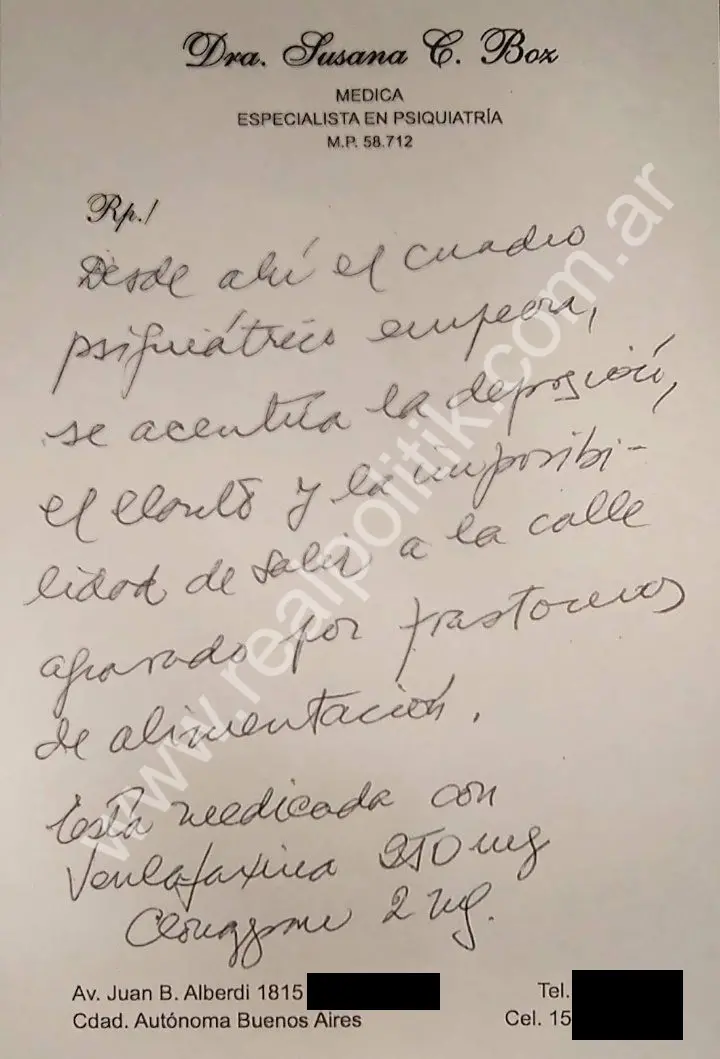 Dra. Susana C. Boz
MEDICA
ESPECIALISTA EN PSIQUIATRÍA
M.P. 58.712
Rp./
Desde ahí el cuadro
psiquiátrico empeora,
se acentúa la depresión,
el llanto y la imposibi-
lidad de salir a la calle
agravado por trastornos
de alimentación.
Está medicada con
Venlafaxina 250 mg
2 mg.
Av. Juan B. Alberdi 1815
Tel.
Cdad. Autónoma Buenos Aires
Cel. 15
www.realpolitik.com.ar